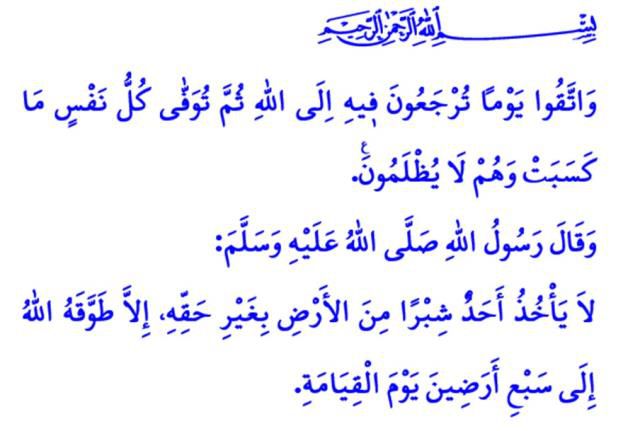 بِسْمِ اللهِ الرَّحْمٰنِ الرَّحِيمِ
وَاتَّقُوا يَوْمًا تُرْجَعُونَ ف۪يهِ اِلَى اللهِ ثُمَّ تُوَفّٰى كُلُّ نَفْسٍ مَا
كَسَبَتْ وَهُمْ لَا يُظْلَمُونَ۟.
وَقَالَ رَسُولُ اللهِ صَلَّى اللهُ عَلَيْهِ وَسَلَّمَ:
لاَ يَأْخُذُ أَحَدٌ شِبْرًا مِنَ الأَرْضِ بِغَيْرِ حَقِّهِ، إِلاَّ طَوَّقَهُ اللهُ
إِلَى سَبْعِ أَرَضِينَ يَوْمَ الْقِيَامَةِ.